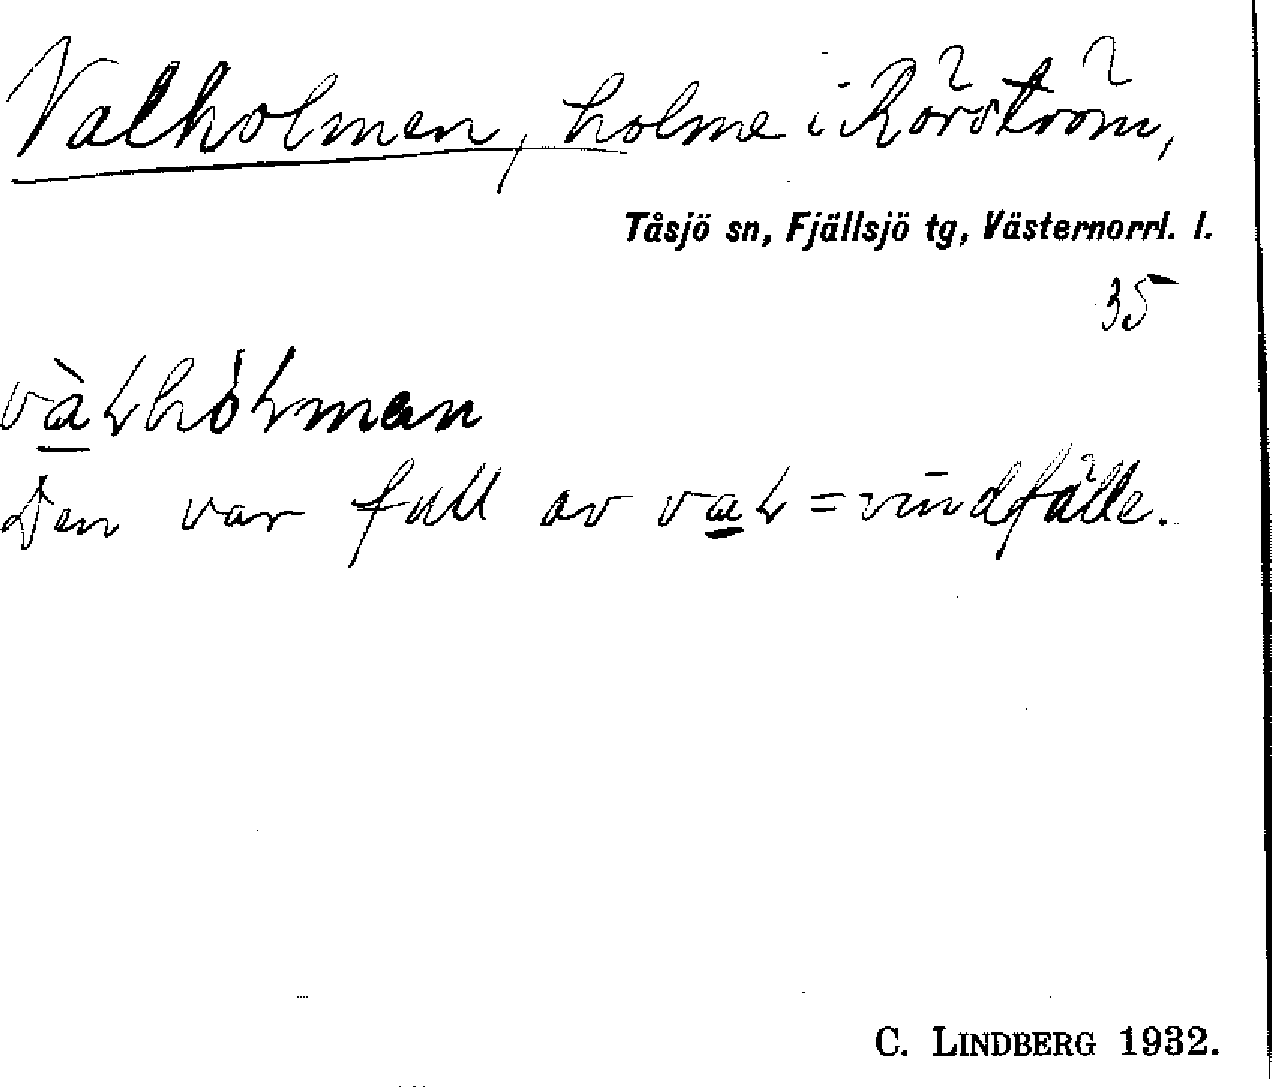 Valholmen, holme i Rörström,
Tåsjö sn, Fjällsjö tg, Västernorrl. l.
35
Den var full av vał = vindfälle.
C. LINDBERG 1932.